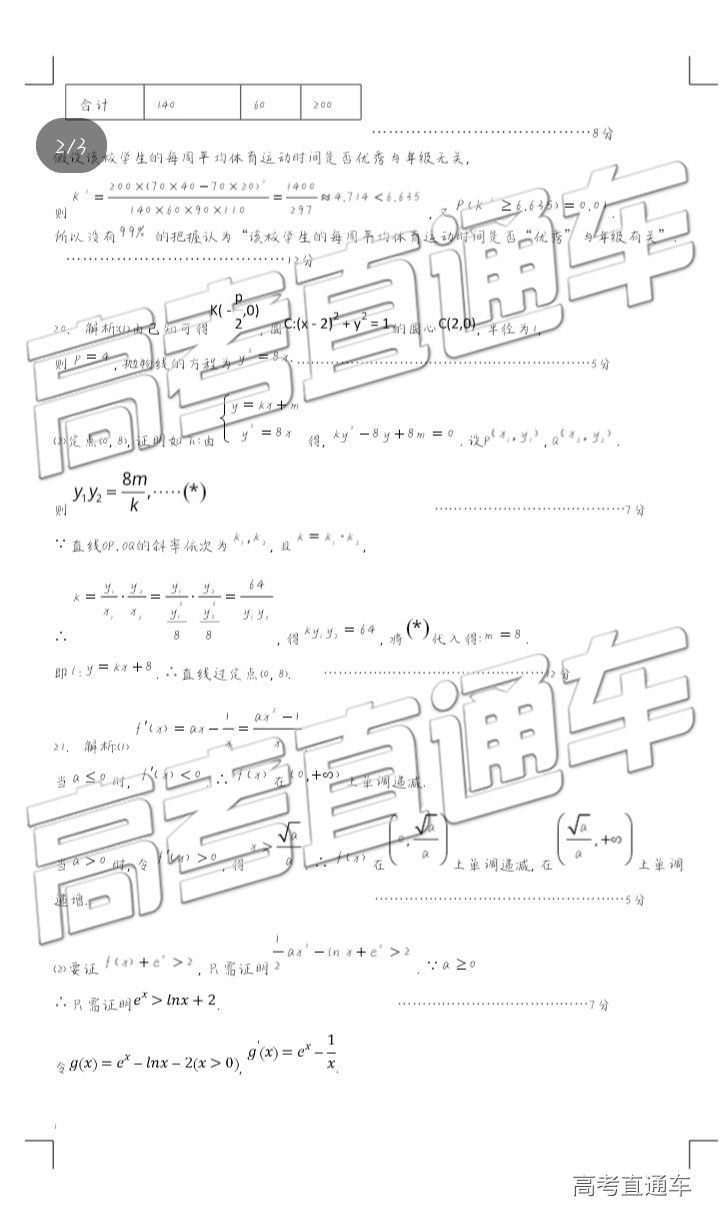 合计 140 60 200
……………………………………8分
2/3
假设该校学生的每周平均体育运动时间是否优秀与年级无关,
则 K² = 200×(70×40-70×20)² / 140×60×90×110 = 1400/297 ≈ 4.714 < 6.635 , P(K² ≥ 6.635) = 0.01 .
所以没有99% 的把握认为“该校学生的每周平均体育运动时间是否“优秀”与年级有关”.
……………………………………12分
20. 解析:(1)由已知可得 K(-p/2,0) , 圆C:(x-2)²+y²=1的圆心C(2,0), 半径为1,
则 P=4 , 抛物线的方程为 y²=8x.……………………………………5分
(2)定点(0, 8), 证明如下:由 { y=kx+m y²=8x 得, ky²-8y+8m=0 . 设P(x₁,y₁) , Q(x₂,y₂) .
则 y₁y₂ = 8m/k ,……(*) ……………………………………7分
∵直线OP、OQ的斜率依次为 k₁,k₂ , 且 k=k₁·k₂ ,
∴ k = y₁/x₁ · y₂/x₂ = y₁/(y₁²/8) · y₂/(y₂²/8) = 64/y₁y₂ , 得 ky₁y₂=64 , 将 (*) 代入得: m=8 .
即l: y=kx+8 . ∴直线过定点(0, 8). ……………………………………12分
21. 解析:(1) f'(x)=ax-1/x=(ax²-1)/x
当 a≤0 时, f'(x)<0 . ∴ f(x) 在 (0,+∞) 上单调递减.
当 a>0 时, 令 f'(x)>0 , 得 x>√a/a , ∴ f(x) 在 (0, √a/a) 上单调递减, 在 (√a/a, +∞) 上单调
递增. ……………………………………5分
(2)要证 f(x)+eˣ>2 , 只需证明 1/2 ax²-ln x+eˣ>2 . ∵ a≥0
∴只需证明eˣ > lnx + 2. ……………………………………7分
令g(x) = eˣ - lnx - 2(x > 0), g'(x) = eˣ - 1/x.
高考直通车
高考直通车
高考直通车